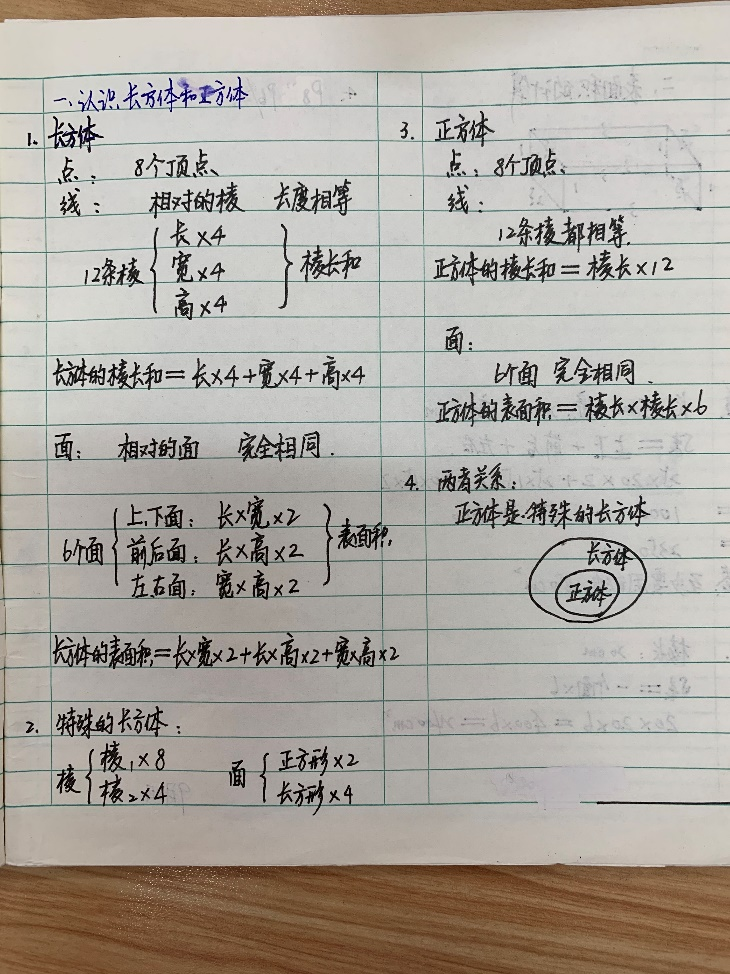 一、认识长方体和正方体
1. 长方体
点： 8个顶点、
线： 相对的棱 长度相等
12条棱 { 长×4
宽×4
高×4 } 棱长和
长方体的棱长和＝长×4＋宽×4＋高×4
面： 相对的面 完全相同.
6个面 { 上,下面：长×宽×2
前后面：长×高×2
左右面：宽×高×2 } 表面积.
长方体的表面积＝长×宽×2＋长×高×2＋宽×高×2
2. 特殊的长方体：
棱 { 棱₁×8
棱₂×4
面 { 正方形×2
长方形×4
3. 正方体
点：8个顶点、
线：
12条棱都相等.
正方体的棱长和＝棱长×12
面：
6个面 完全相同.
正方体的表面积＝棱长×棱长×6
4. 两者关系：
正方体是特殊的长方体
长方体
正方体